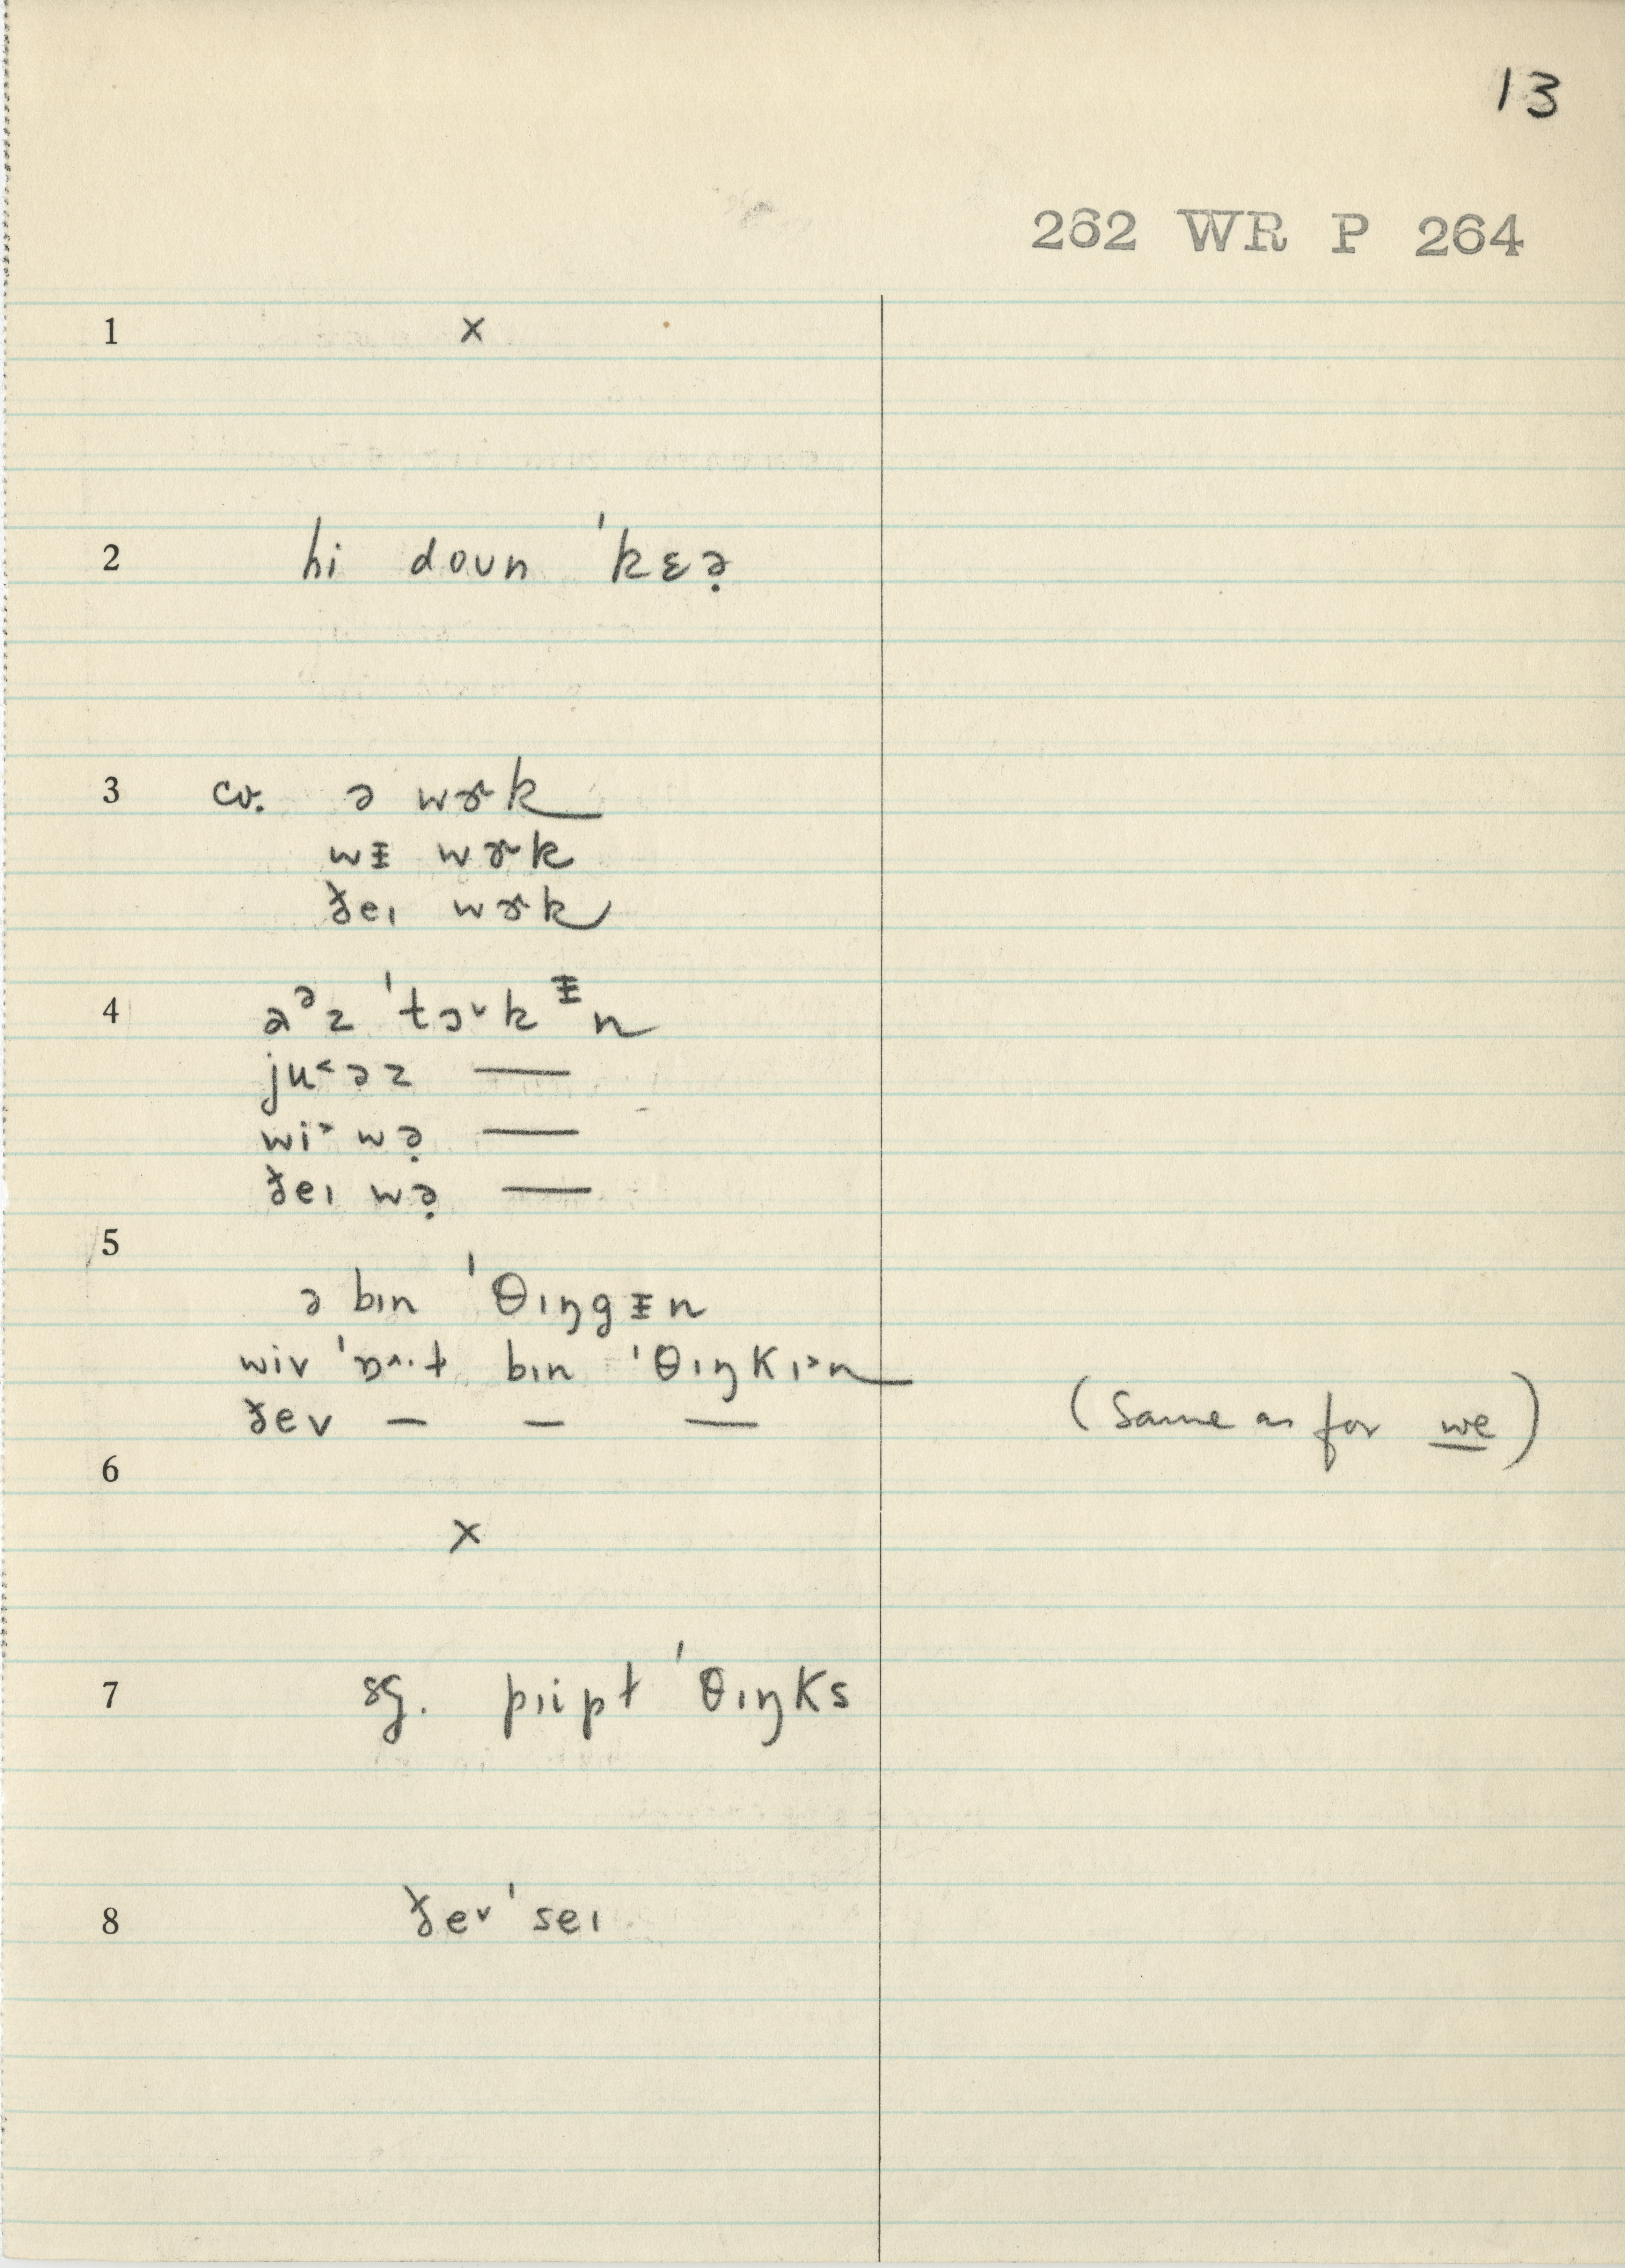 13
262 WR P 264
1 x
2 hi doun ˈkɛə̣
3 cv. ə wɝk
wᵻ wɝk
ðeɩ wɝk
4 aᵊz ˈtɔ˅kᵻn
ju˂əz —
wi˃ wə̣ —
ðeɩ wə̣ —
5 ə bɩn ˈθɩŋgᵻn
wiv bɩn ˈθɩŋkɩ˃n
ðev — — — (Same as for we)
6 x
7 sg. pɩipɫ ˈθɩŋks
8 ðe˅ ˈseɩ